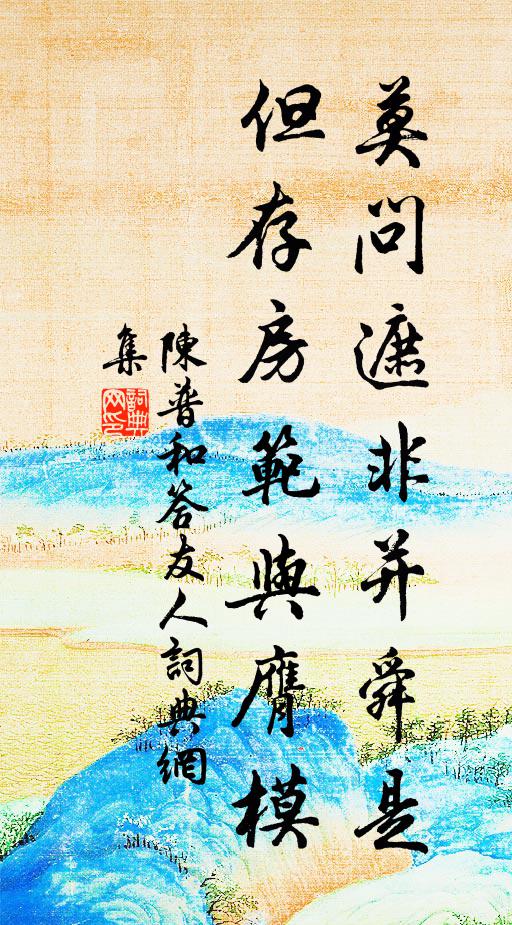 莫問遮非并舜是
但存房範與膺模
陳普和答友人詞典網
集
詞典网印